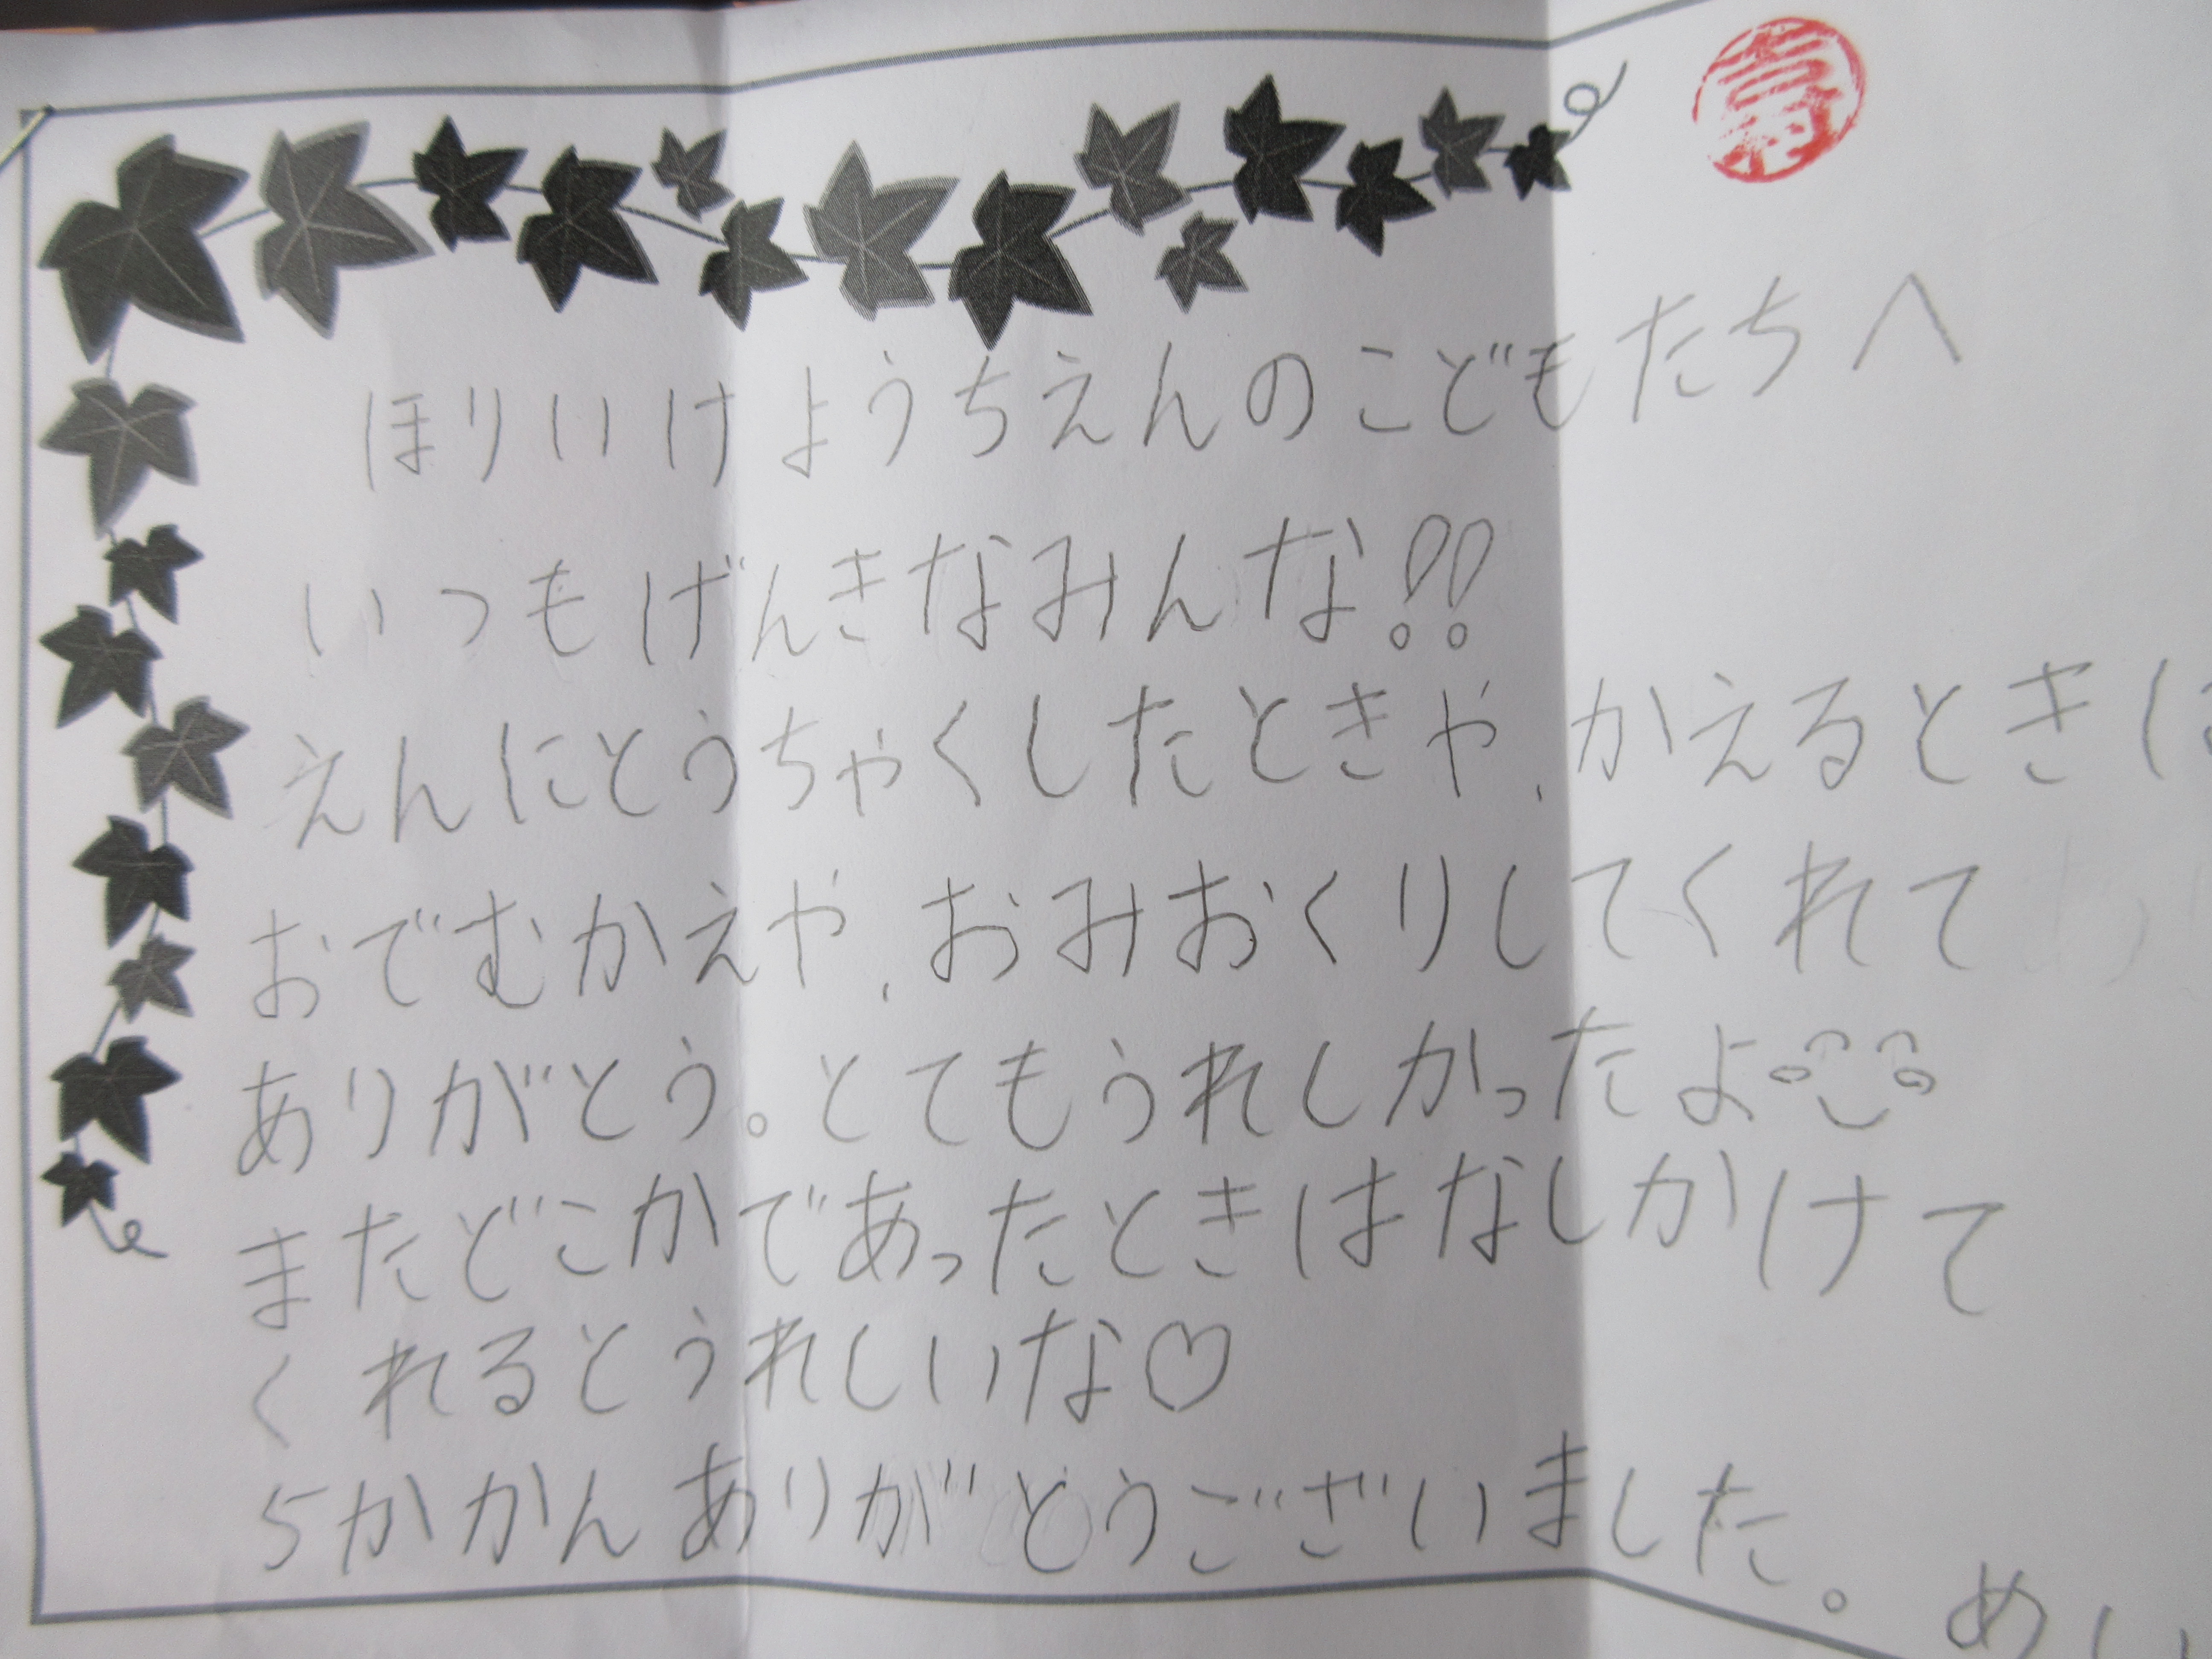 ほりいけようちえんのこどもたちへ
いつもげんきなみんな!!
えんにとうちゃくしたときや、かえるときに
おでむかえや、おみおくりしてくれて
ありがとう。とてもうれしかったよ
またどこかであったときはなしかけて
くれるとうれしいな♡
5かかんありがとうございました。
めい